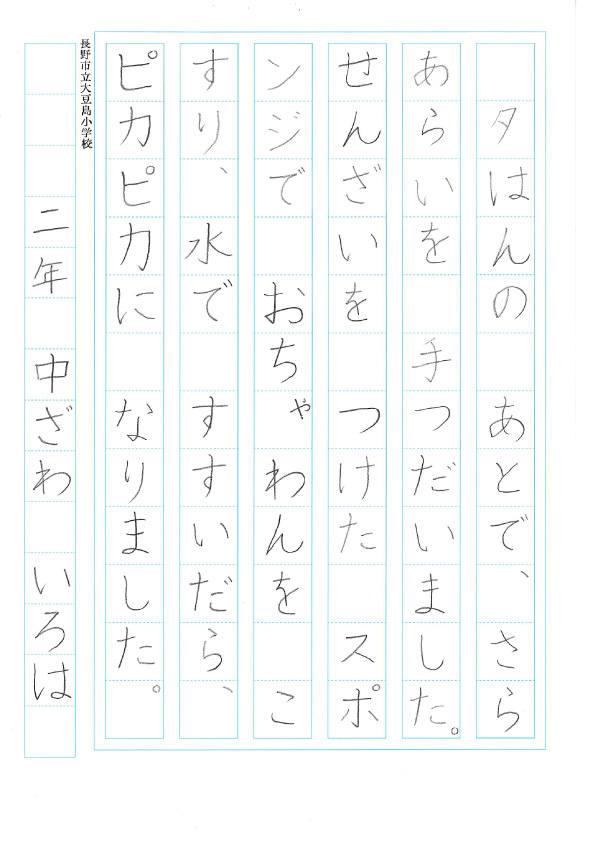 夕はんの　あとで、さら
あらいを　手つだいました。
せんざいを　つけた　スポ
ンジで　おちゃわんを　こ
すり、水で　すすいだら、
ピカピカに　なりました。
長野市立大豆島小学校
二年　中ざわ　いろは